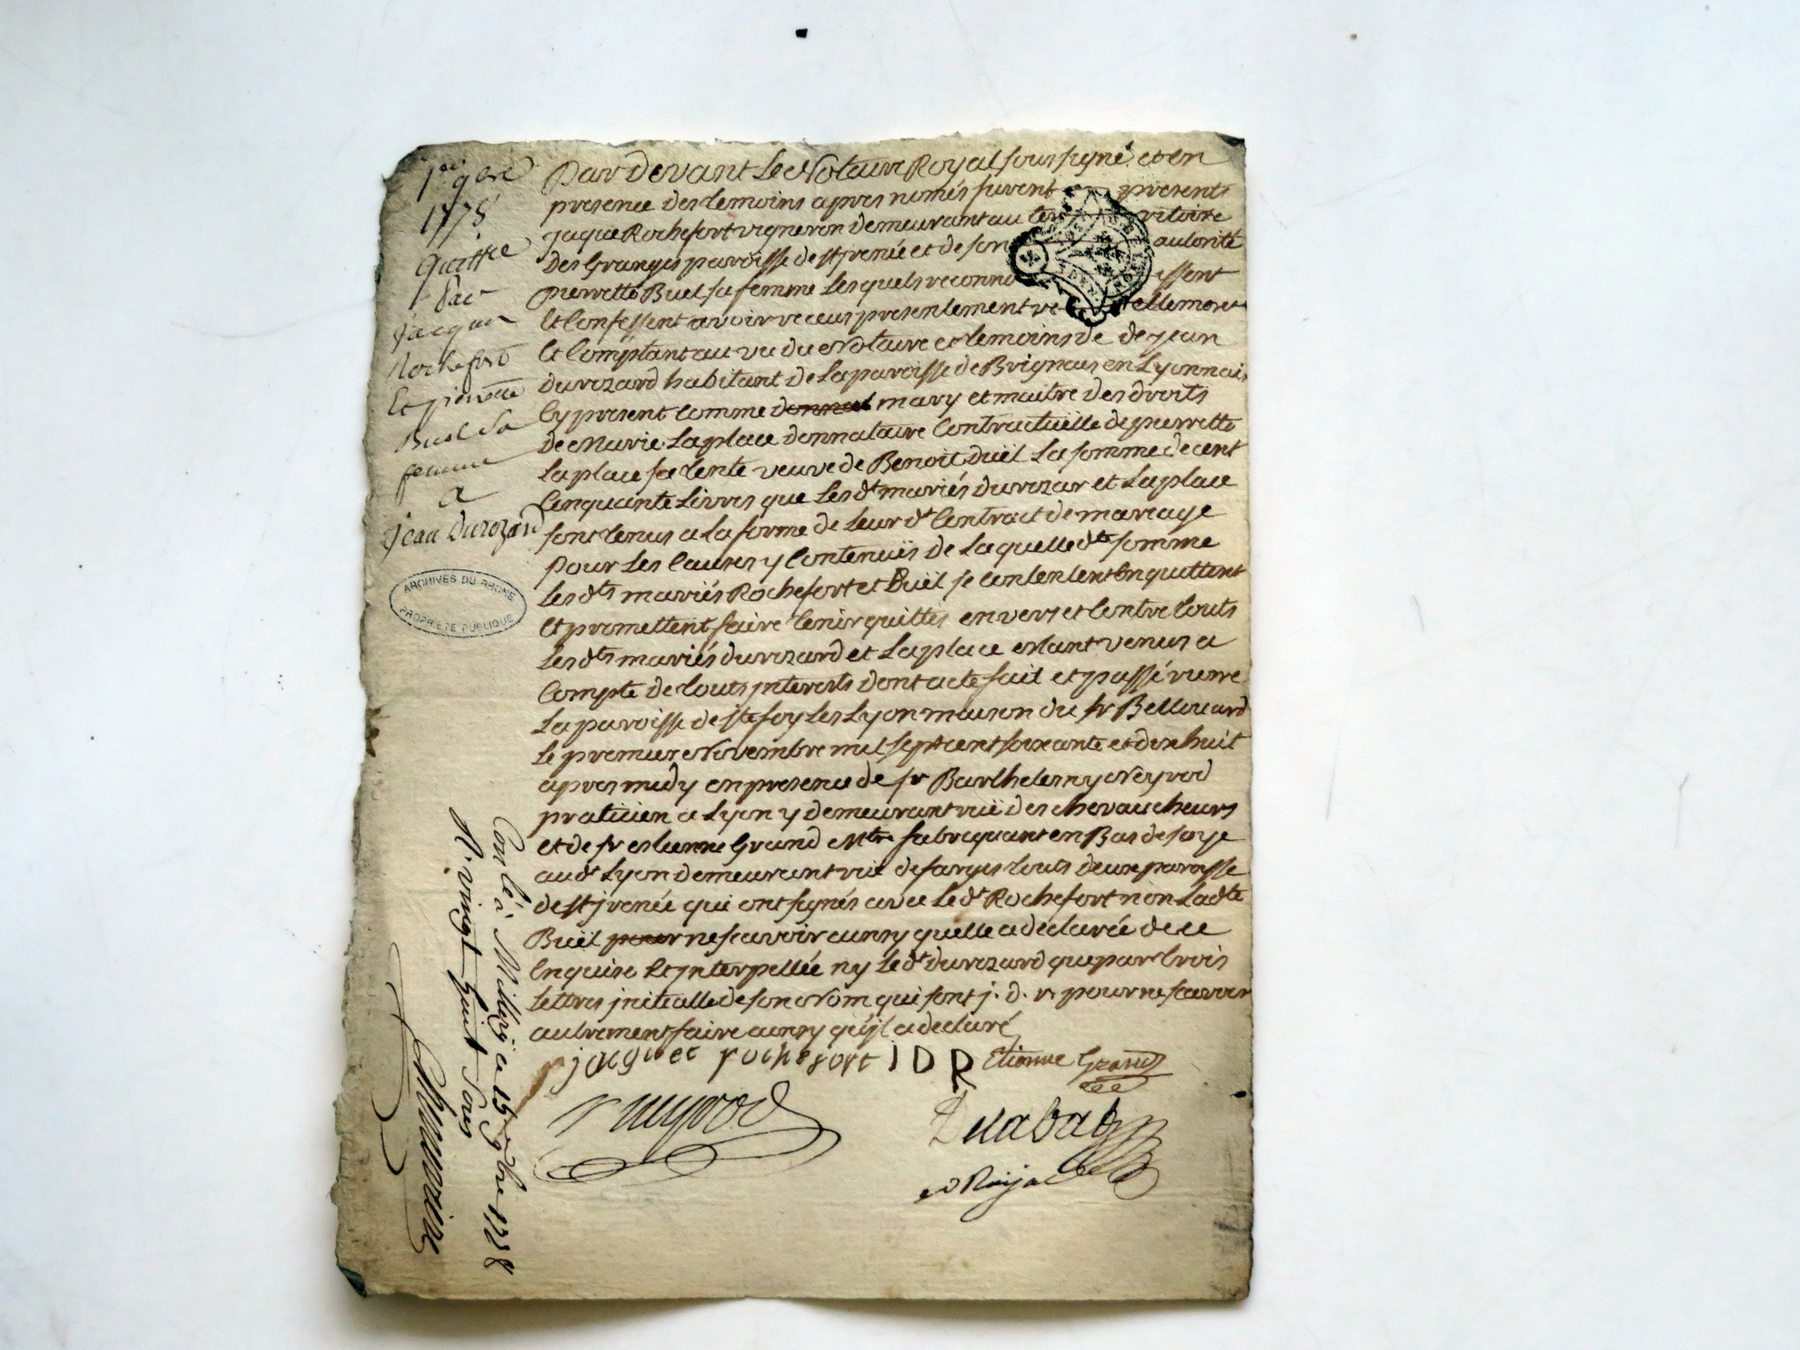 1er 9bre
1778
quittce
par
jacques
Rochefort
Et pierrette
Buel sa
femme
a
jean Durozard
ARCHIVES DU RHONE
PROPRIETE PUBLIQUE
Par Devant Le Notaire Royal soussigné et en
presence des temoins apres només furent presents
jaque Rochefort vigneron demeurant au territoire
Des Granges paroisse de st jrenée et de son autorité
pierrette Buel sa femme Lesquels reconnoissent
Et Confessent avoir receus presentement reellement
Et Comptant au vu du Notaire et temoins de de jean
durozard habitant de La paroisse de Brignais en Lyonnais
Cy present Comme donnat mary et maitre des droits
de Marie Laplace donnataire Contractuelle de pierrette
Laplace sa tente veuve de Benoit Buël La somme de cent
Cinquante Livres que Les dt mariés durozar et Laplace
sont tenus a La forme de Leur dt Contract de mareage
pour Les Causes y Contenuës de Laquelle dte somme
Les dts mariés Rochefort et Buël se contentent En quittent
Et promettent faire tenir quittes envers et Contre touts
Les dts mariés durozard et Laplace estant venus a
Compte de touts jnterests dont acte fait et passé
La paroisse de ste foy Les Lyon maison du sr Bellouard
Le premier Novembre mil sept cent soixante et dix huit
apres midy en presence de sr Barthelemy Neyrod
praticien a Lyon y demeurant ruë des chevaucheurs
et de sr estienne Grand Mtre fabriquant en Bas de soye
au dt Lyon demeurant ruë de farges touts deux paroisse
de st jrenée qui ont signés avec Le dt Rochefort non La dte
Buël pour ne scavoir aunsy quelle a déclarée de ce
Enquise Et jnterpellée ny Le dt durozard que par trois
Lettres jnitialle de son Nom qui sont j. d. r. pour ne scavoir
autrement faire aunsy qujl a declaré
jacques rochefort I D R Etienne Grand
neyrod
Nre Royal
Conlé à Millery le 15 9bre 1778
R. vingt huit sols